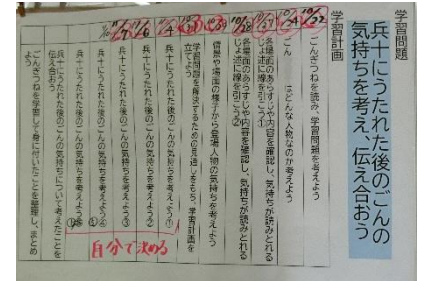 学習問題
兵十にうたれた後のごんの
気持ちを考え、伝え合おう
学習計画
10/22
ごんぎつねを読み、学習問題を考えよう
10/24
ごん はどんな人物なのか考えよう
各場面のあらすじや内容を確認し、気持ちが読みとれる
じょ述に線を引こう①
10/28
各場面のあらすじや内容を確認し、気持ちが読みとれる
じょ述に線を引こう②
情景や場面の様子から登場人物の気持ちを考えよう
学習問題を解決するための見通しをもち、学習計画を
立てよう
兵十にうたれた後のごんの気持ちを考えよう①
兵十にうたれた後のごんの気持ちを考えよう②
兵十にうたれた後のごんの気持ちを考えよう③
兵十にうたれた後のごんの気持ちを考えよう④
自分で決める
兵十にうたれた後のごんの気持ちについて考えたことを
伝え合おう
ごんぎつねを学習して身に付いたことを整理し、まとめ
よう